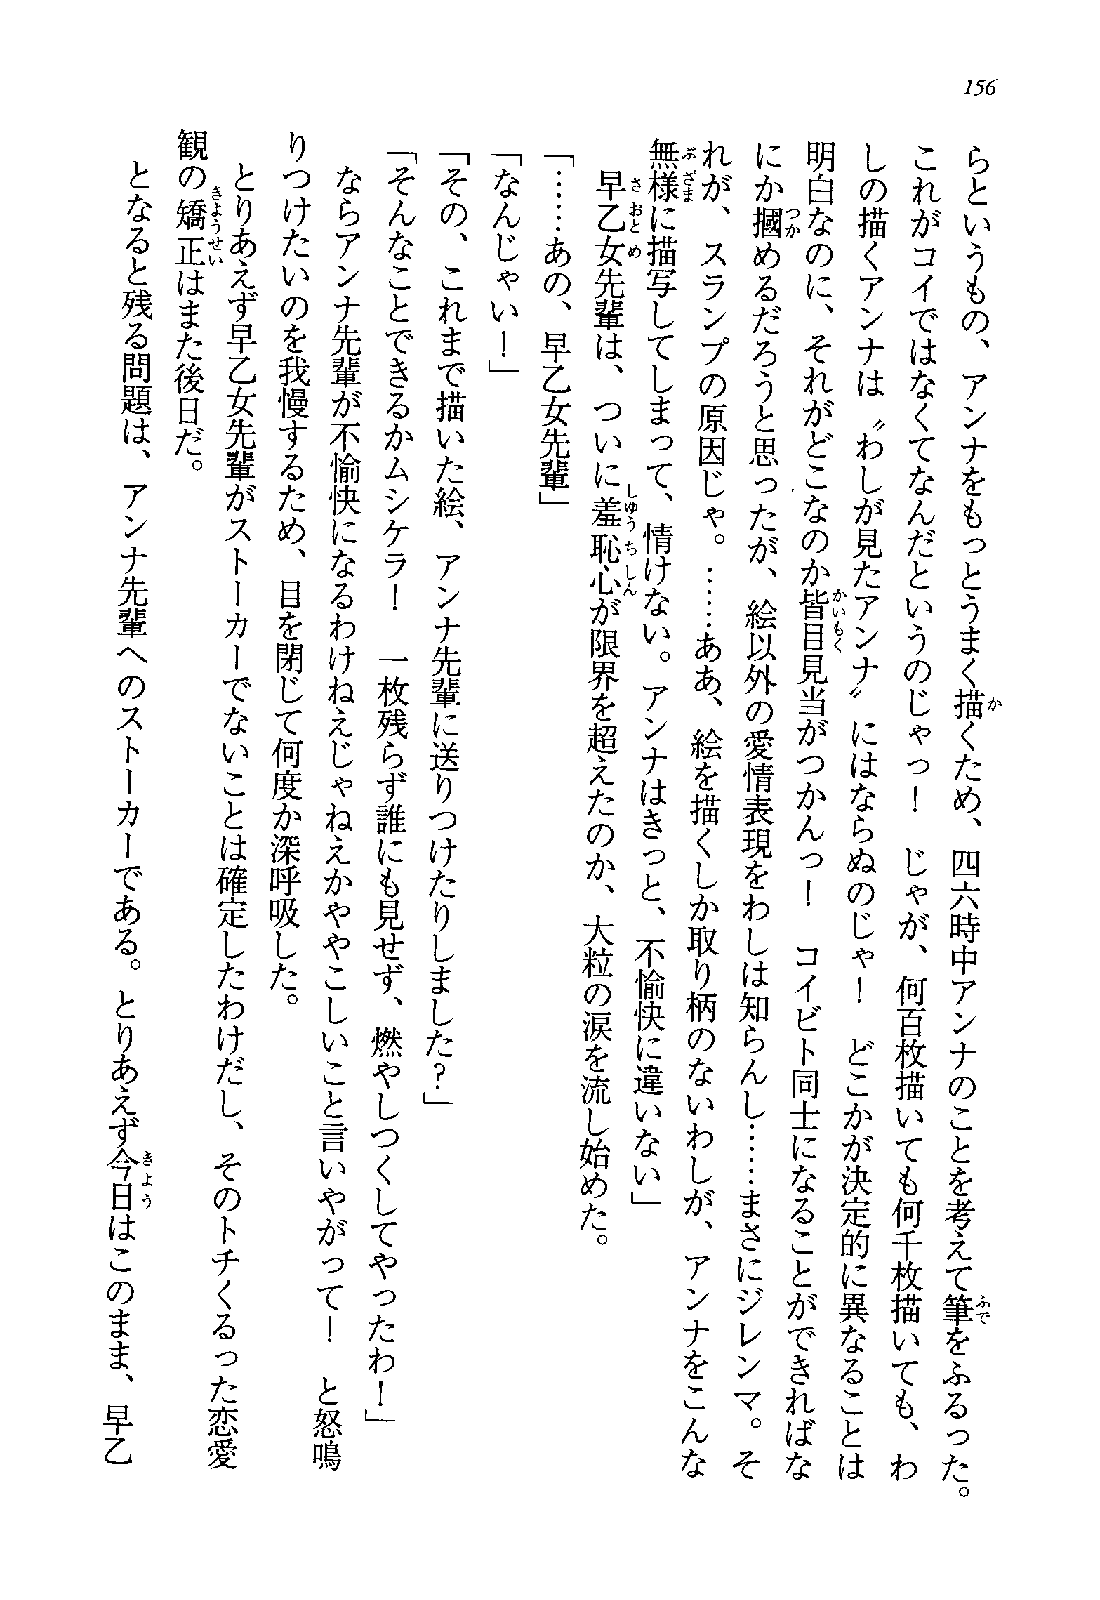 156
らというもの、アンナをもっとうまく描くため、四六時中アンナのことを考えて筆をふるった。
これがコイではなくてなんだというのじゃっ！　じゃが、何百枚描いても何千枚描いても、わ
しの描くアンナは〝わしが見たアンナ〟にはならぬのじゃ！　どこかが決定的に異なることは
明白なのに、それがどこなのか皆目見当がつかんっ！　コイビト同士になることができればな
にか摑めるだろうと思ったが、絵以外の愛情表現をわしは知らんし……まさにジレンマ。そ
れが、スランプの原因じゃ。……ああ、絵を描くしか取り柄のないわしが、アンナをこんな
無様に描写してしまって、情けない。アンナはきっと、不愉快に違いない」
早乙女先輩は、ついに羞恥心が限界を超えたのか、大粒の涙を流し始めた。
「……あの、早乙女先輩」
「なんじゃい！」
「その、これまで描いた絵、アンナ先輩に送りつけたりしました？」
「そんなことできるかムシケラ！　一枚残らず誰にも見せず、燃やしつくしてやったわ！」
ならアンナ先輩が不愉快になるわけねえじゃねえかややこしいこと言いやがって！　と怒鳴
りつけたいのを我慢するため、目を閉じて何度か深呼吸した。
とりあえず早乙女先輩がストーカーでないことは確定したわけだし、そのトチくるった恋愛
観の矯正はまた後日だ。
となると残る問題は、アンナ先輩へのストーカーである。とりあえず今日はこのまま、早乙